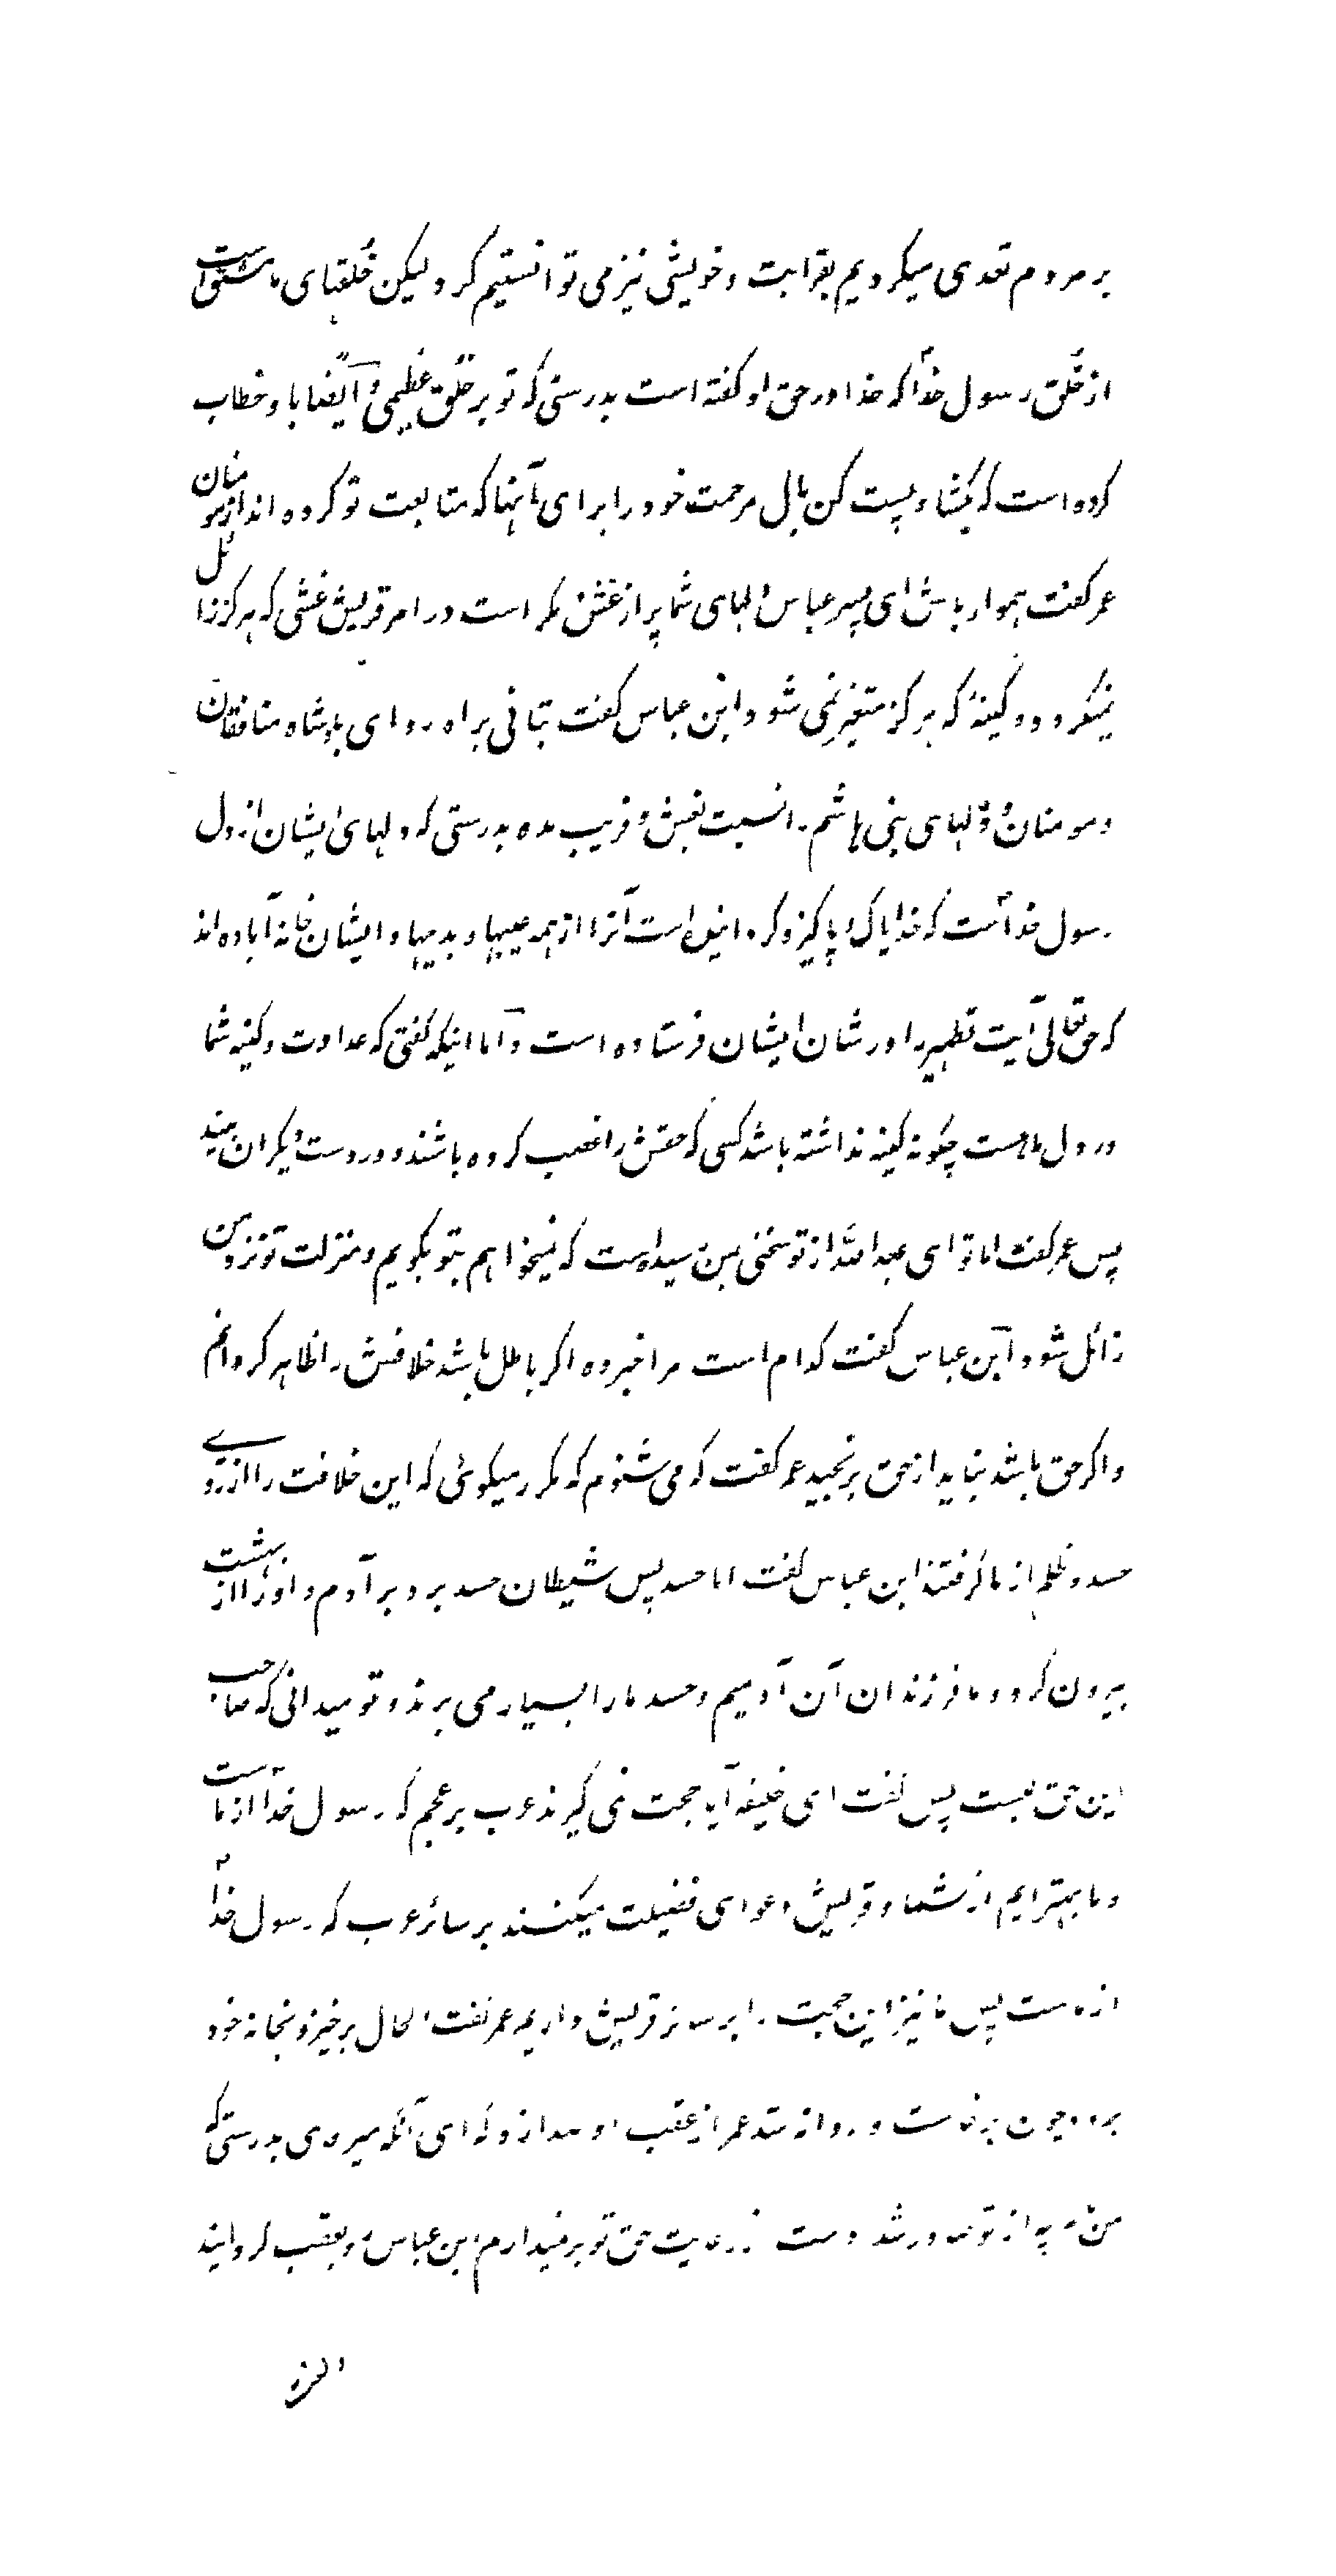 بر مردم تعدی میکردیم بقرابت و خویشی نیز می توانستیم کرد ولیکن خُلقهای ما مشتق است
از خُلق رسول خداؐ که خدا در حق او گفته است بدرستی که تو بر خُلق عظیمی و ایضًا با و خطاب
کرده است که پست کن بال مرحمت خود را برای آنها که متابعت تو کرده اند از مومنان
عمر گفت هموار باش ای پسر عباس دلهای شما پر از غش و مکر است در امر قریش غشی که هرگز زائل
نمیگردد و کینهٔ که هرگز متغیر نمی شود ابن عباس گفت بتانی براه رو ای پادشاه منافقان
و مومنان و دلهای بنی هاشم را نسبت بغش و فریب مده بدرستی که دلهای ایشان از دل
رسول خداؐست که خدا پاک و پاکیزه کردانیده است آنرا از همه عیبها و بدیها و ایشان خانه آباده اند
که حق تعالی آیت تطهیر را در شان ایشان فرستاده است و اما اینکه گفتی که عداوت و کینه شما
در دل ماهست چگونه کینه نداشته باشد کسی که حقش را غصب کرده باشند و در دست دیگران بیند
پس عمر گفت اما تو ای عبد الله از تو سخنی بمن رسیده است که نمیخواهم بتو بگویم و منزلت تو نزد من
زائل شود ابن عباس گفت کدام است مرا خبر ده اگر باطل باشد خلافش را ظاهر گردانم
و اگر حق باشد نباید از حق برنجید عمر گفت که می شنوم که مکرر میگوئی که این خلافت را از روے
حسد و ظلم از ما گرفتند ابن عباس گفت اما حسد پس شیطان حسد برد بر آدم و اورا از بهشت
بیرون کرد و ما فرزندان آن آدمیم و حسد ما را بسیار می برند و تو میدانی که صاحب
این حق کیست پس گفت ای خلیفه آیا حجت نمی گیرند عرب بر عجم که رسول خداؐ از ماست
و ما بهتر ایم از شما و قریش دعوای فضیلت میکنند بر سائر عرب که رسول خداؐ
از ماست پس ما نیز این حجت را بر سائر قریش داریم عمر گفت الحال برخیز و بخانه خود
برو و چون برخاست و روانه شد عمر از عقب او صدا زد که ای آنکه میروی بدرستی که
من از تو صادر شد دست از رعایت حق تو برنمیدارم ابن عباس رو بعقب گردانید